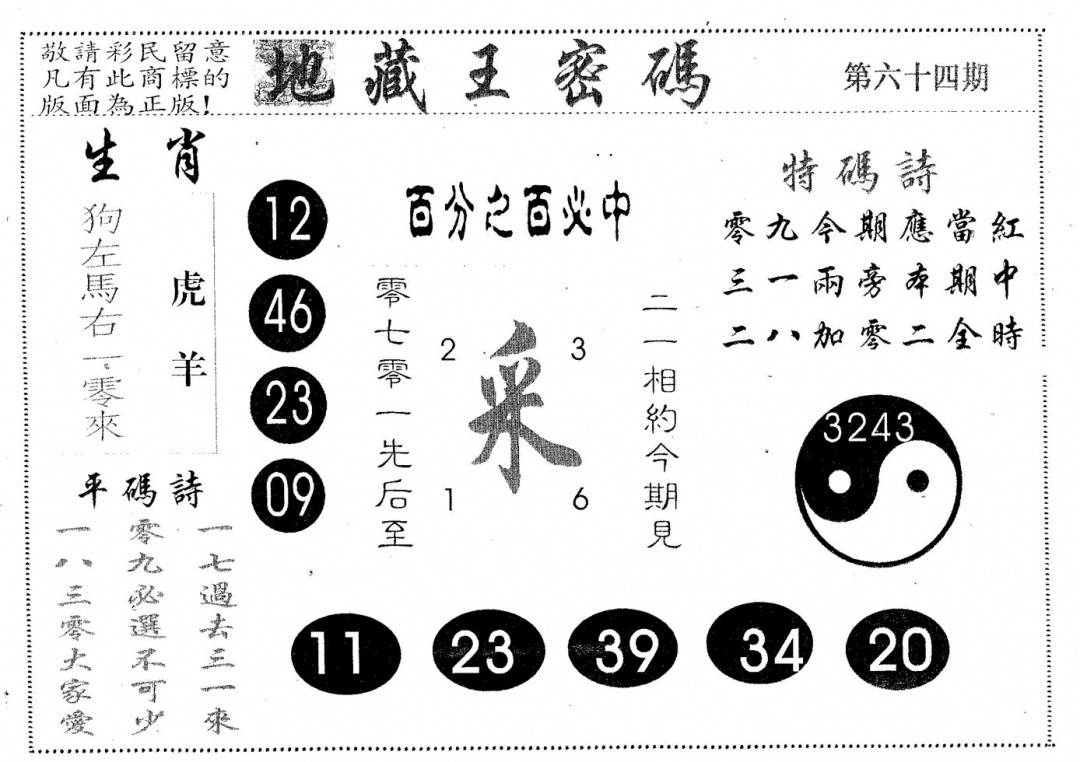 敬請彩民留意
凡有此商標的
版面為正版!
地藏王密碼
第六十四期
生肖
狗左馬右一零來
虎羊
12
46
23
09
百分之百必中
零七零一先后至
2
3
采
1
6
二一相約今期見
特碼詩
零九今期應當紅
三一兩旁本期中
二八加零二全時
3243
平碼詩
一七過去三一來
零九必選不可少
一八三零大家愛
11
23
39
34
20